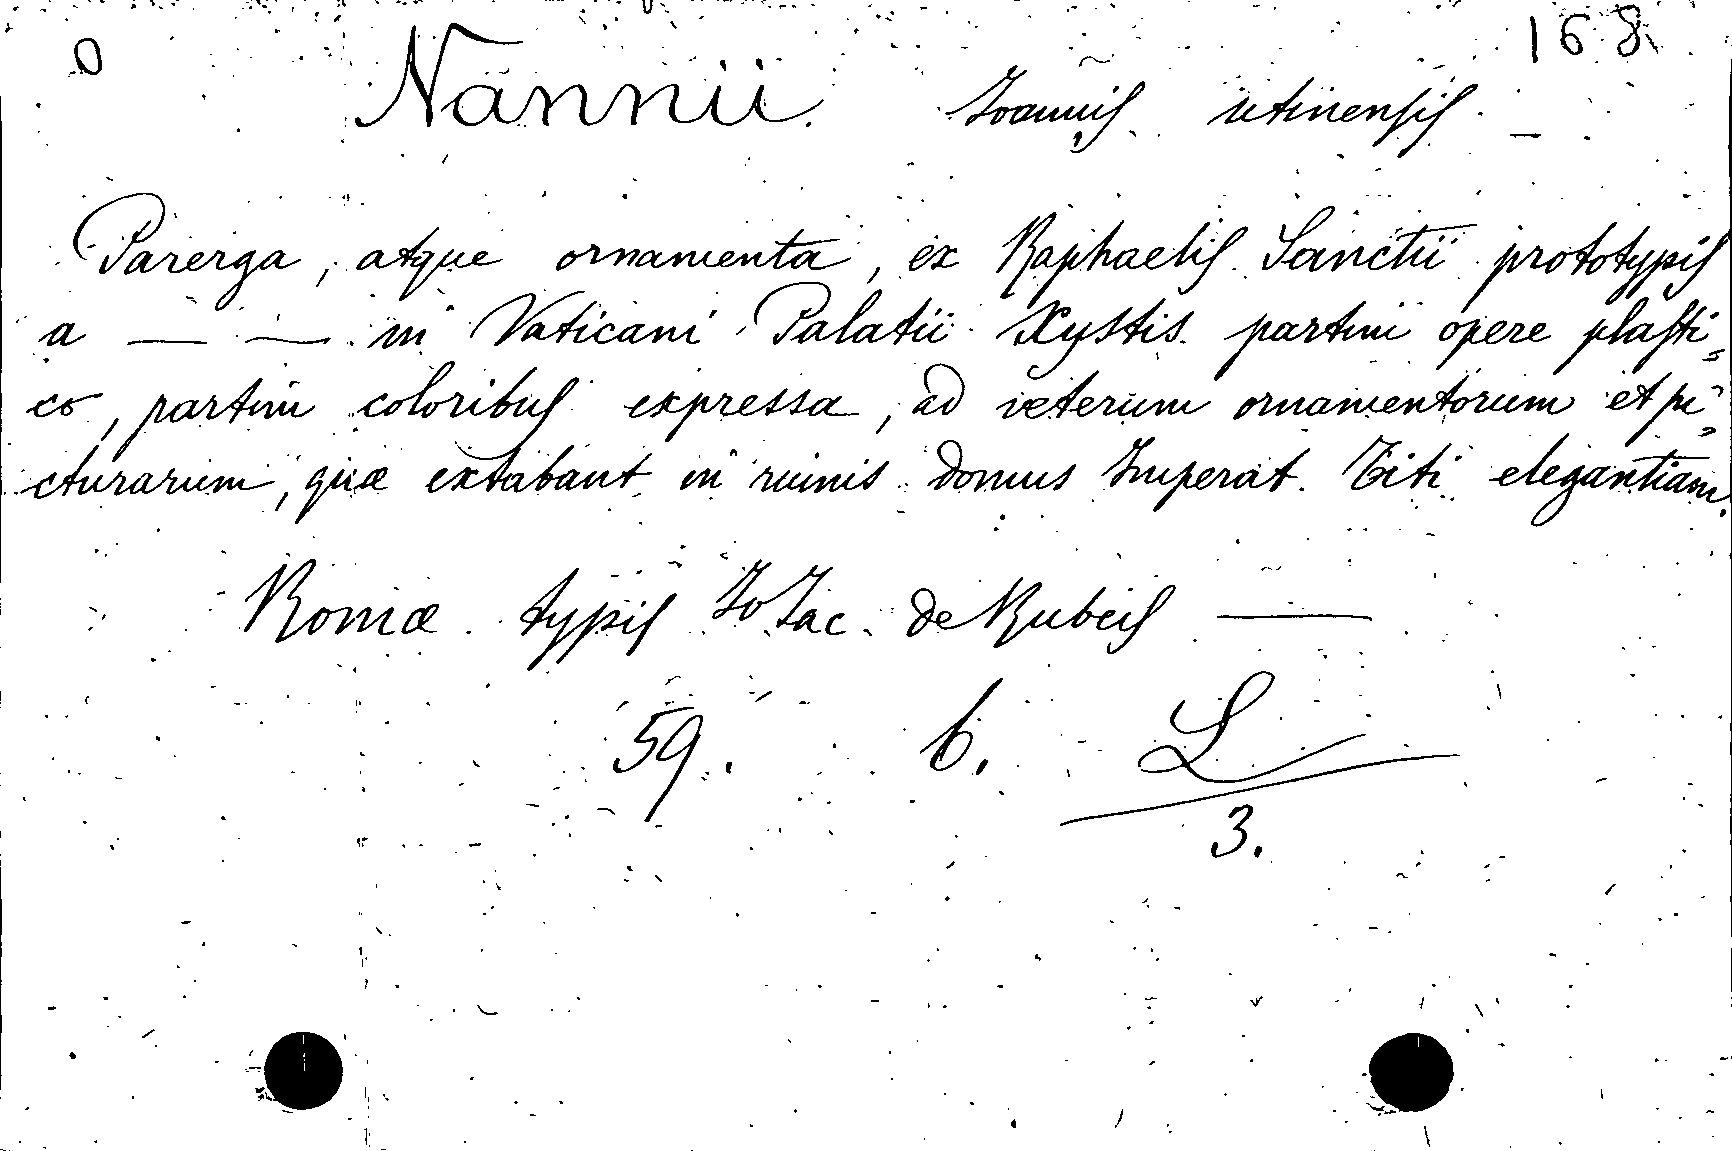 0 168
Nannii. Ioannis utinensis. —
Parerga, atque ornamenta, ex Raphaelis Sanctii prototypis
a — — in Vaticani Palatii Xystis partim opere plasti=
co, partim coloribus expressa, ad veterum ornamentorum et pi=
cturarum, quæ extabant in ruinis domus Imperat. Titi elegantiam.
Romæ typis Io Iac. de Rubeis —
59. b. L
3.